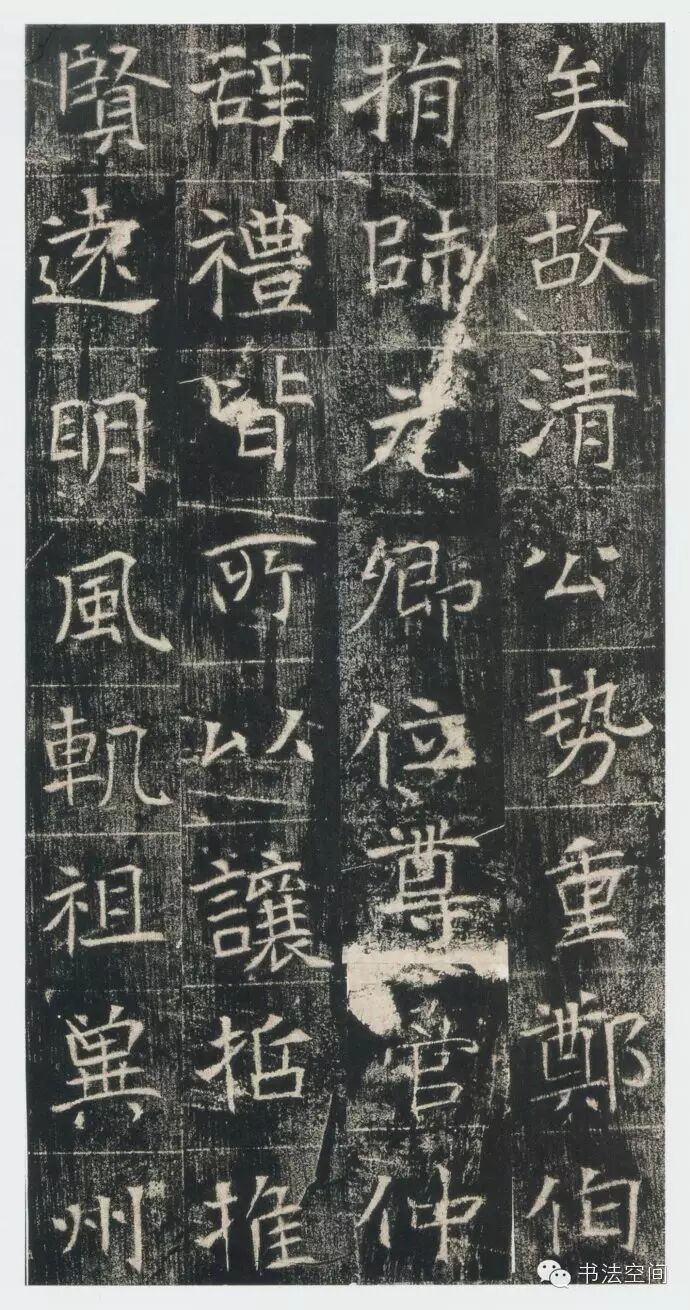 矣故清公势重鄭伯
捐師元卿位尊管仲
辞禮皆所以讓括推
賢遠明風軌祖冀州
书法空间